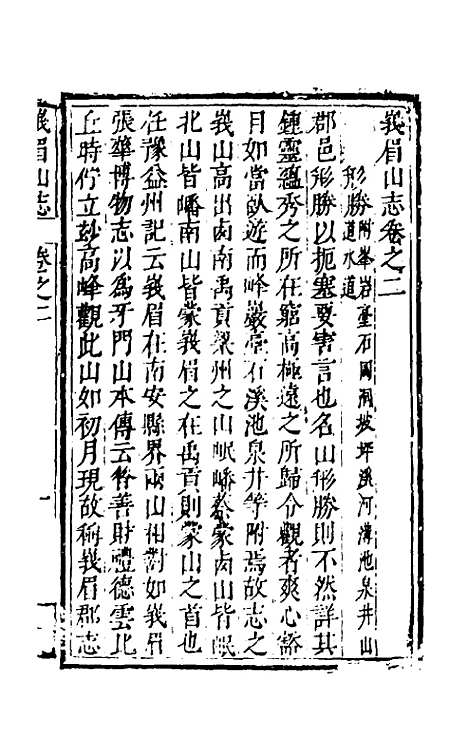 峩眉山志卷之二
形勝附峯岩臺石岡洞坡坪溪河灘池泉井山道水道
郡邑形勝以扼塞要害言也名山形勝則不然詳其
鍾靈蘊秀之所在窮高極遠之所歸令觀者爽心豁
目如當臥遊而峰巖臺石溪池泉井等附焉故志之
峩山高出西南禹貢梁州之山岷嶓蔡蒙西山皆岷
北山皆嶓南山皆蒙峩眉之在禹貢則蒙山之首也
任豫益州記云峩眉在南安縣界兩山相對如峩眉
張華博物志以爲牙門山本傳云昔善財禮德雲比
丘時佇立妙高峰觀此山如初月現故稱峩眉郡志
峩眉山志
卷之二
一